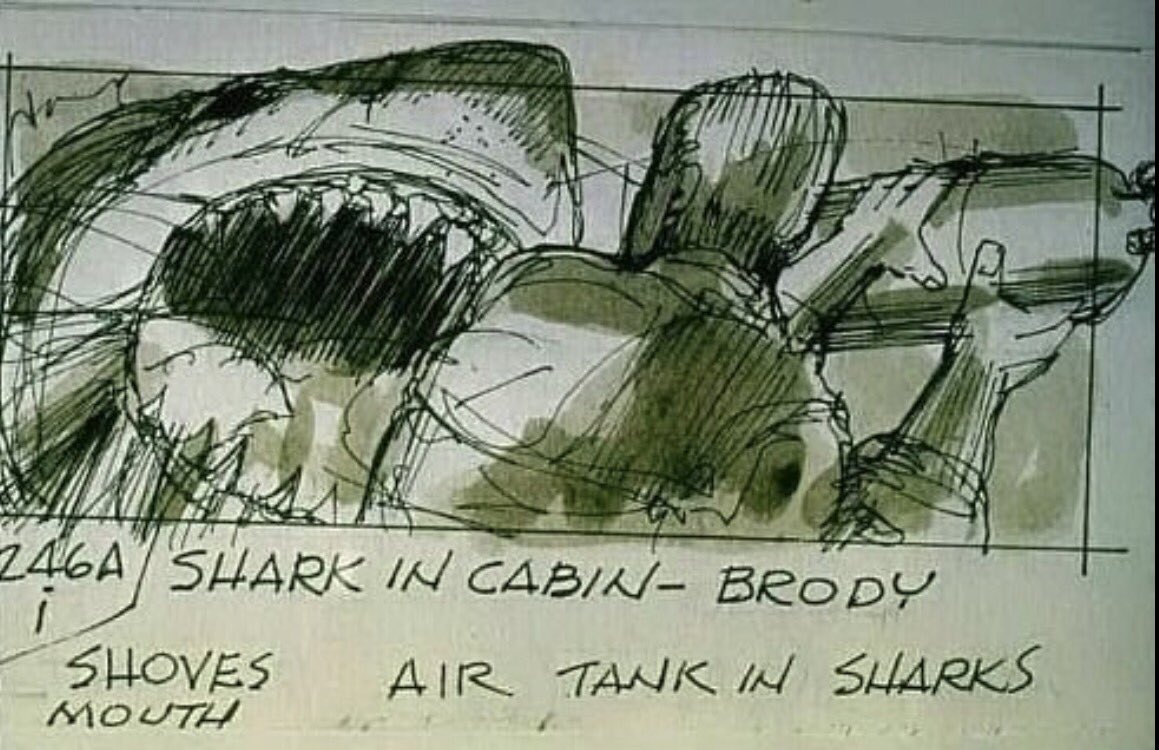 246A SHARK IN CABIN- BRODY
i
SHOVES AIR TANK IN SHARKS
MOUTH